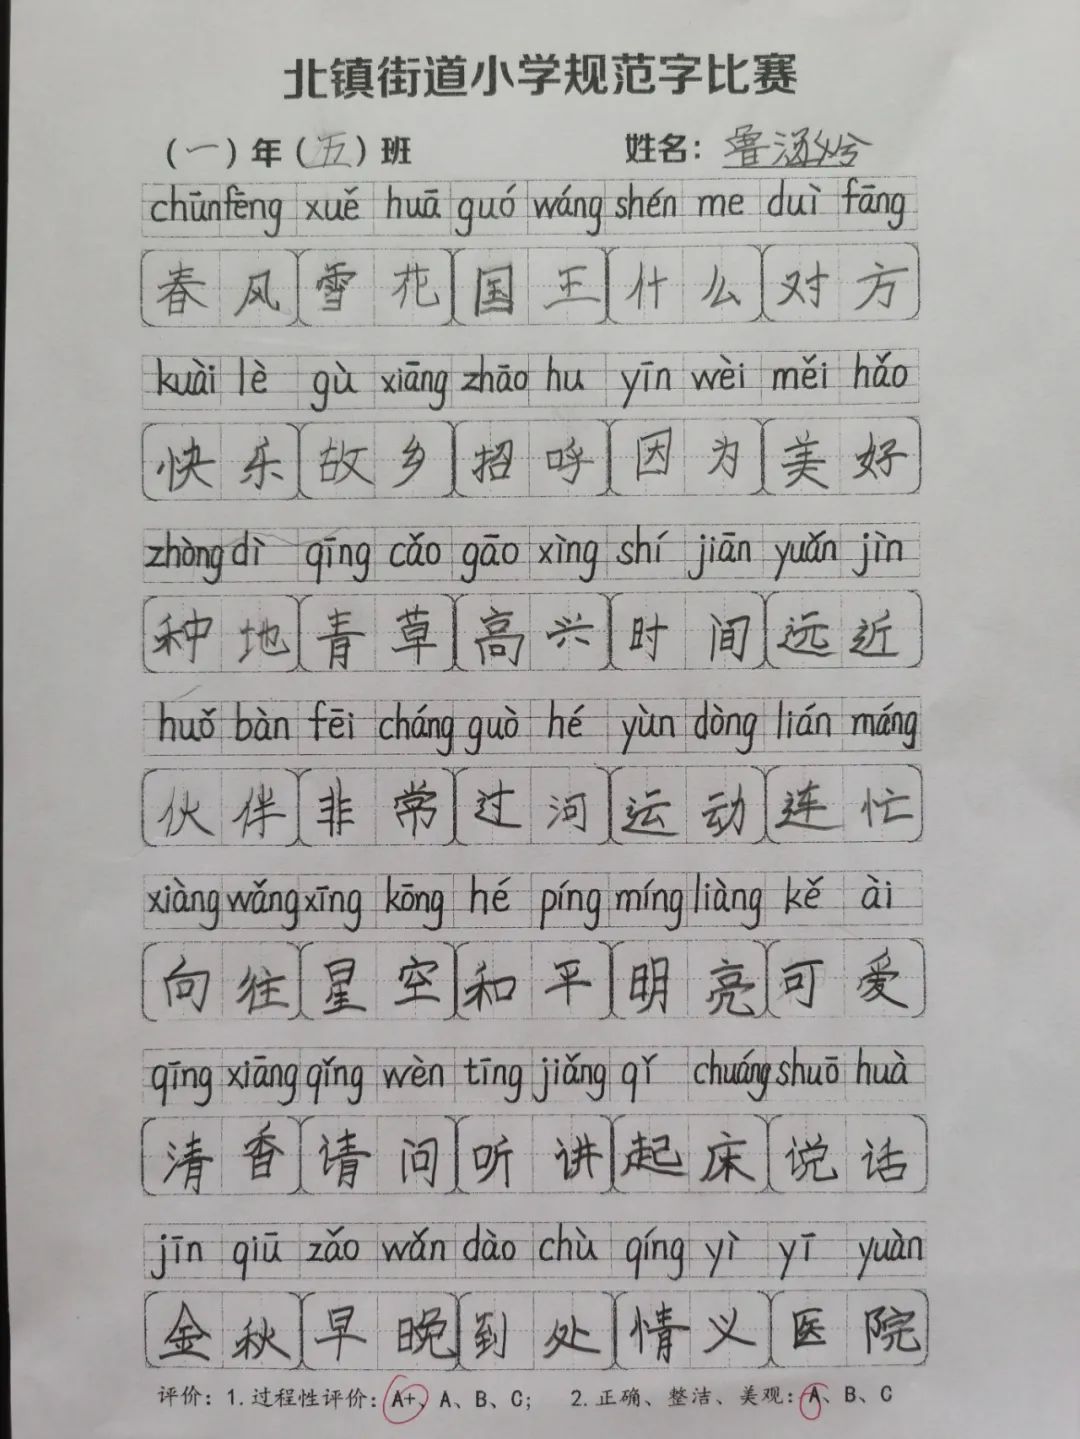 北镇街道小学规范字比赛
(一)年(五)班 姓名:鲁涵兮
chūn fēng xuě huā guó wáng shén me duì fāng
春风 雪花 国王 什么 对方
kuài lè gù xiāng zhāo hu yīn wèi měi hǎo
快乐 故乡 招呼 因为 美好
zhòng dì qīng cǎo gāo xìng shí jiān yuǎn jìn
种地 青草 高兴 时间 远近
huǒ bàn fēi cháng guò hé yùn dòng lián máng
伙伴 非常 过河 运动 连忙
xiàng wǎng xīng kōng hé píng míng liàng kě ài
向往 星空 和平 明亮 可爱
qīng xiāng qǐng wèn tīng jiǎng qǐ chuáng shuō huà
清香 请问 听讲 起床 说话
jīn qiū zǎo wǎn dào chù qíng yì yī yuàn
金秋 早晚 到处 情义 医院
评价: 1.过程性评价: A+、A、B、C; 2.正确、整洁、美观: A、B、C